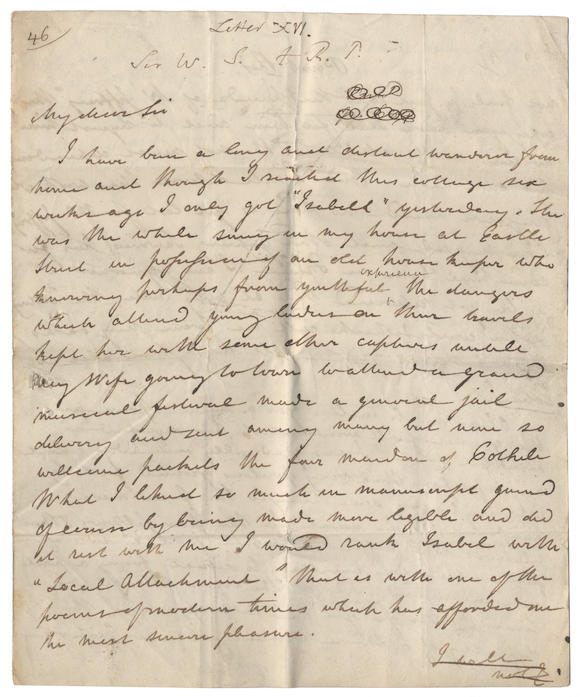 46
Letter XVI.
Sir W. S. to R. P.
My dear Sir
I have been a long and distant wanderer from
home and though I reached this cottage six
weeks ago I only got "Isabell" yesterday. She
was the whole snug in my house at Castle
Street in possession of an old housekeeper who
knowing perhaps from youthful experience the dangers
which attend young ladies on their travels
kept her with some other captives untill
my Wife going to town to attend a grand
musical festival made a general jail
delivery and sent among many but none so
wellcome packets the fair maiden of Cothele
What I liked so much in manuscript gained
of course by being made more legible and did
it rest with me I would rank Isabel with
"Local Attachment" that is with one of the
poems of modern times which has afforded me
the most sincere pleasure.